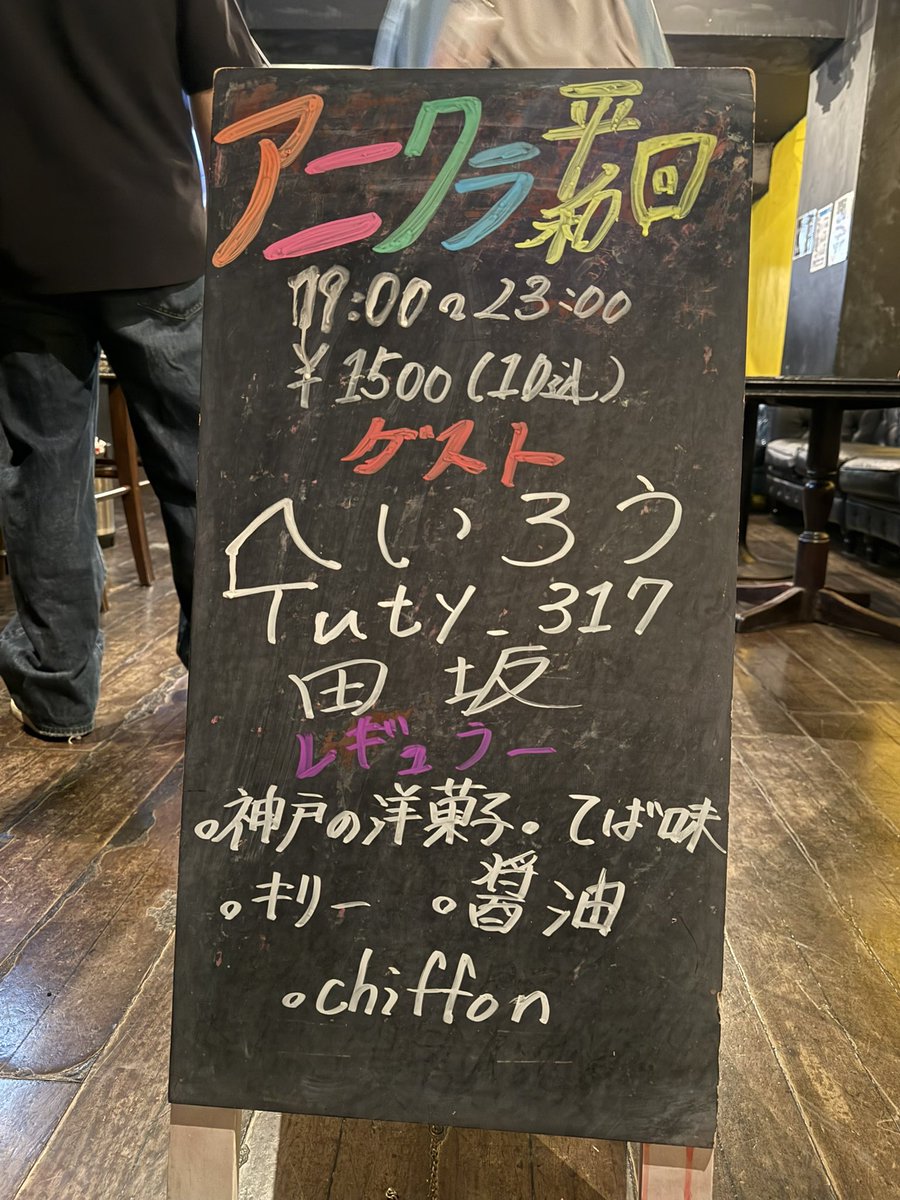 アニクラ平和の回
19:00~23:00
¥1500(1D込)
ゲスト
へいろう
Tuty_317
田坂
レギュラー
。神戸の洋菓子。てば味
。キリー 。醤油
。chiffon